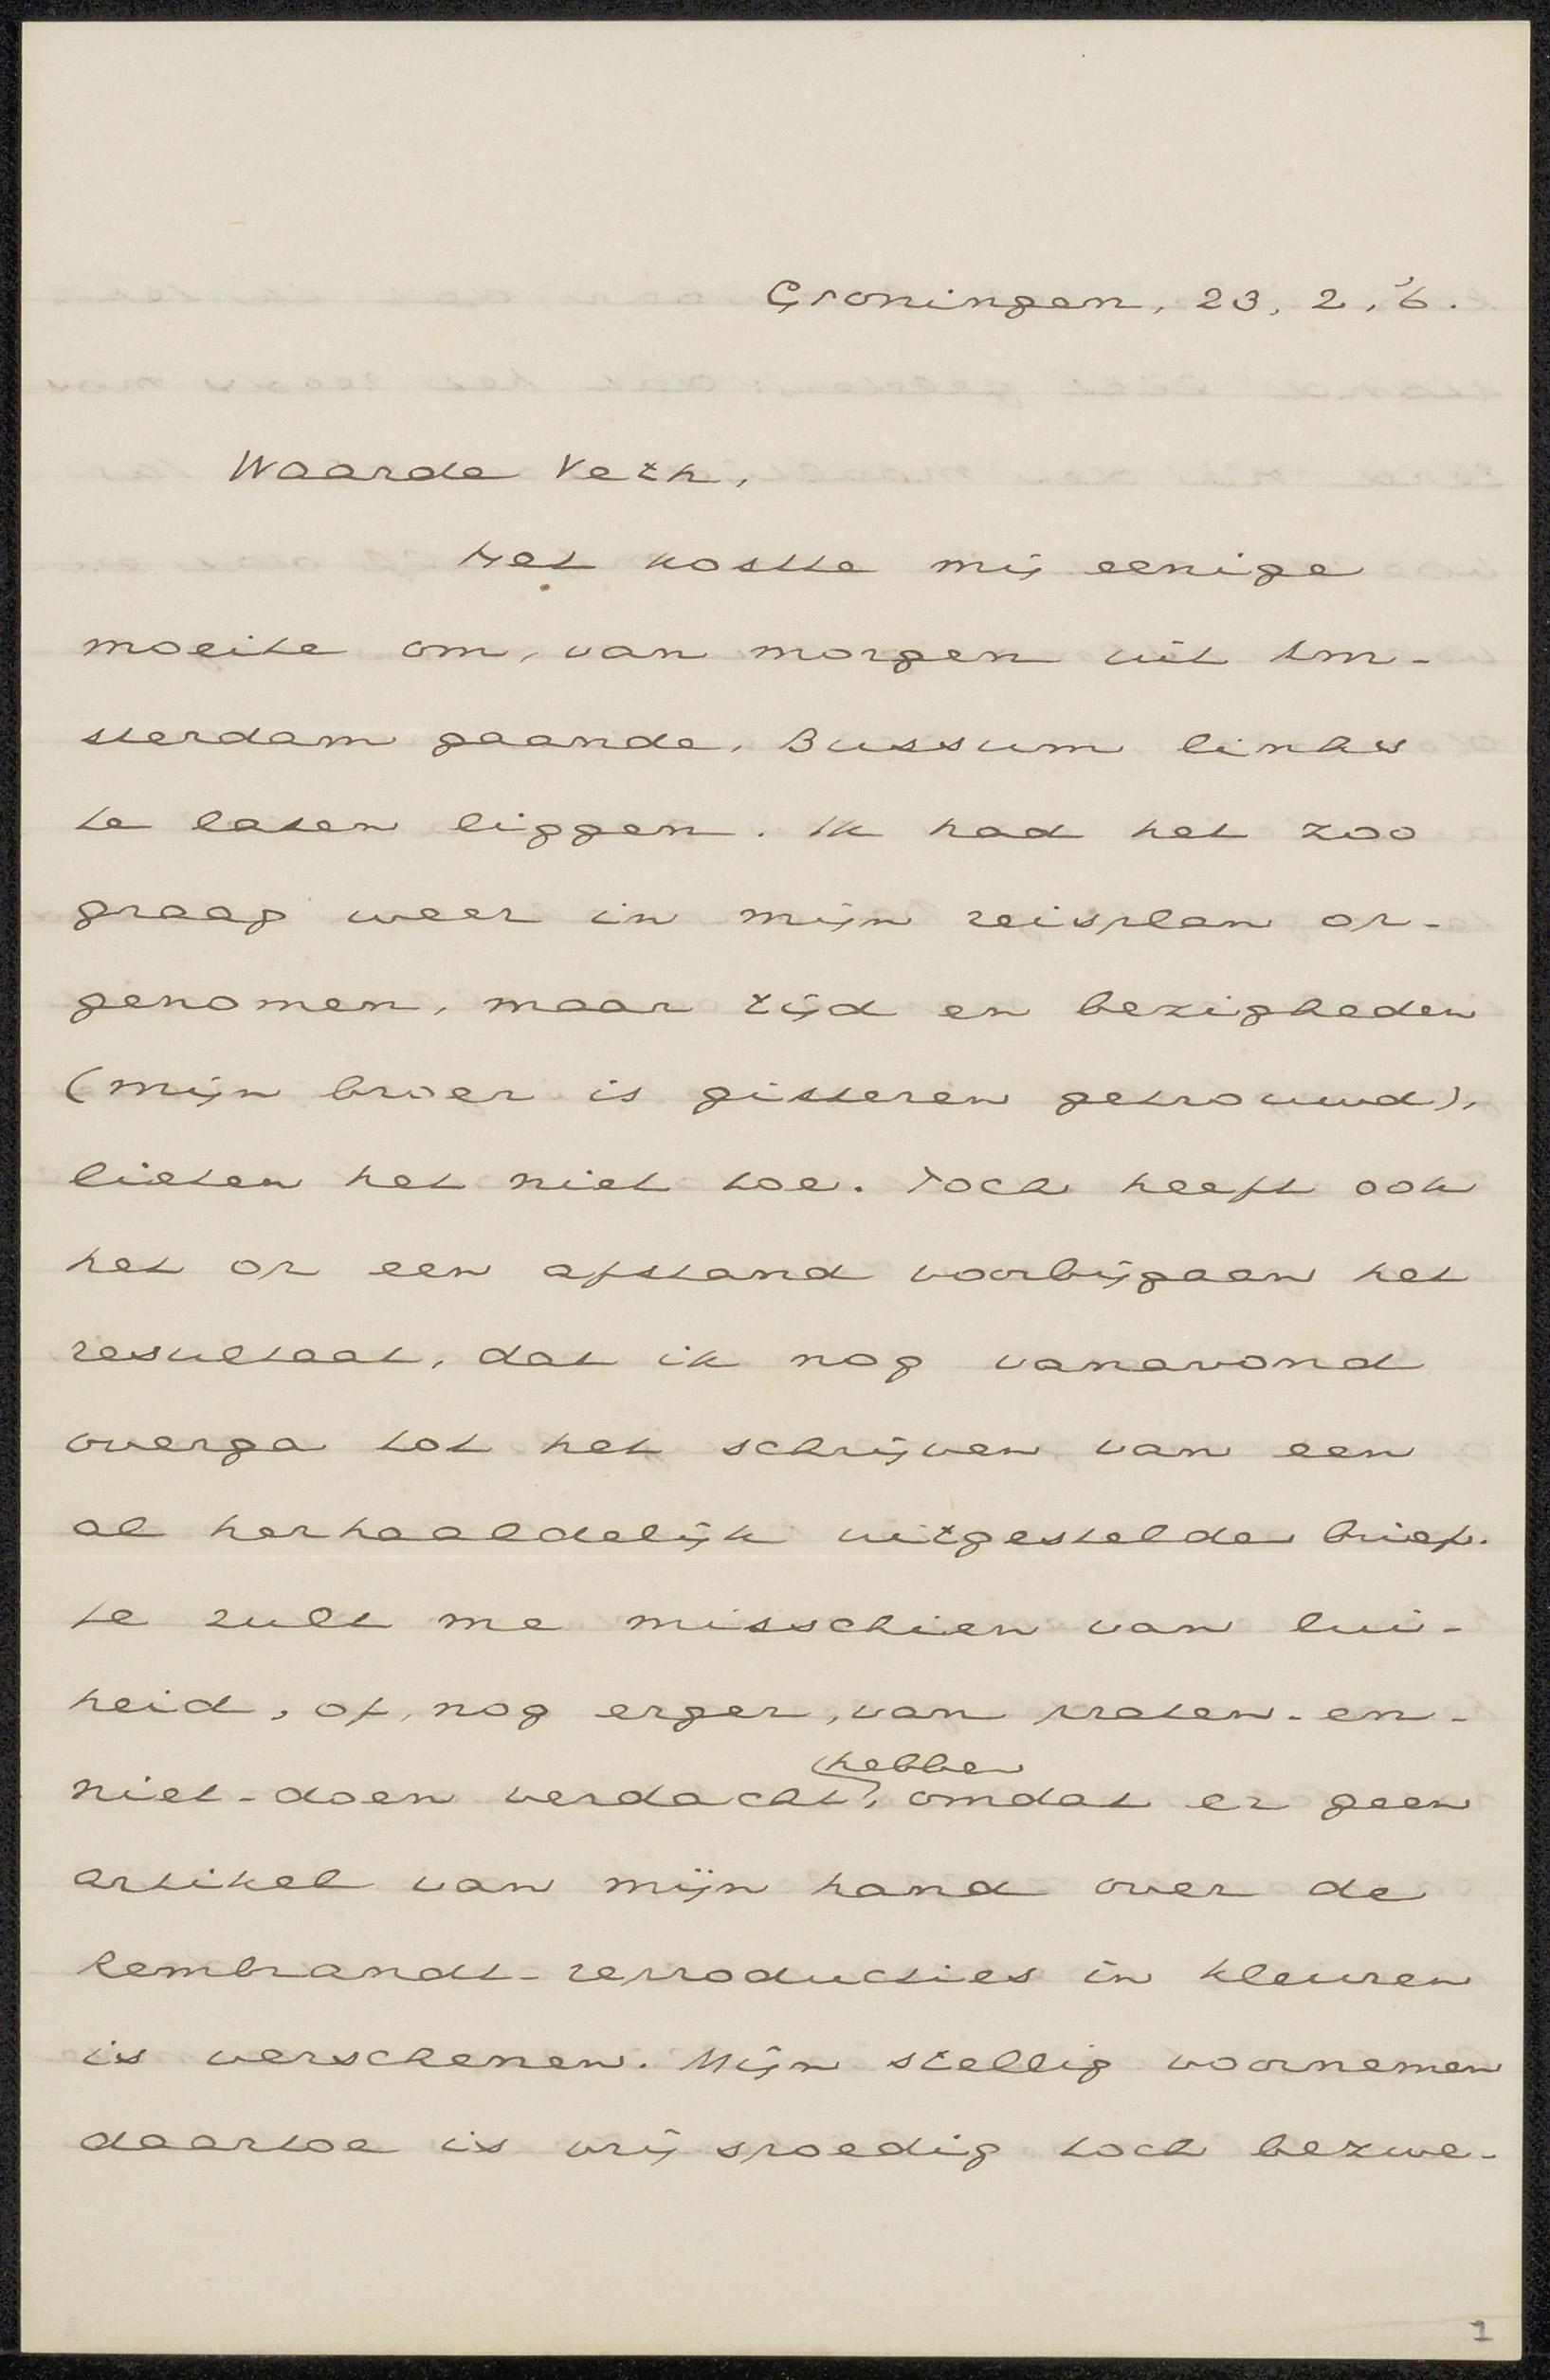 Groningen, 23, 2, '6.
Waarde Veth,
Het kostte mij eenige
moeite om, van morgen uit Am-
sterdam gaande, Bussum links
te laten liggen. Ik had het zoo
graag weer in mijn reisplan op-
genomen, maar tijd en bezigheden
(mijn broer is gisteren getrouwd),
lieten het niet toe. Toch heeft ook
het op een afstand voorbijgaan het
resultaat, dat ik nog vanavond
overga tot het schrijven van een
al herhaaldelijk uitgestelde brief.
Je zult me misschien van lui-
heid, of, nog erger, van praten-en-
hebben
niet-doen verdacht, omdat er geen
artikel van mijn hand over de
Rembrandt-reproducties in kleuren
is verschenen. Mijn stellig voornemen
daartoe is vrij spoedig toch bezwe-
1